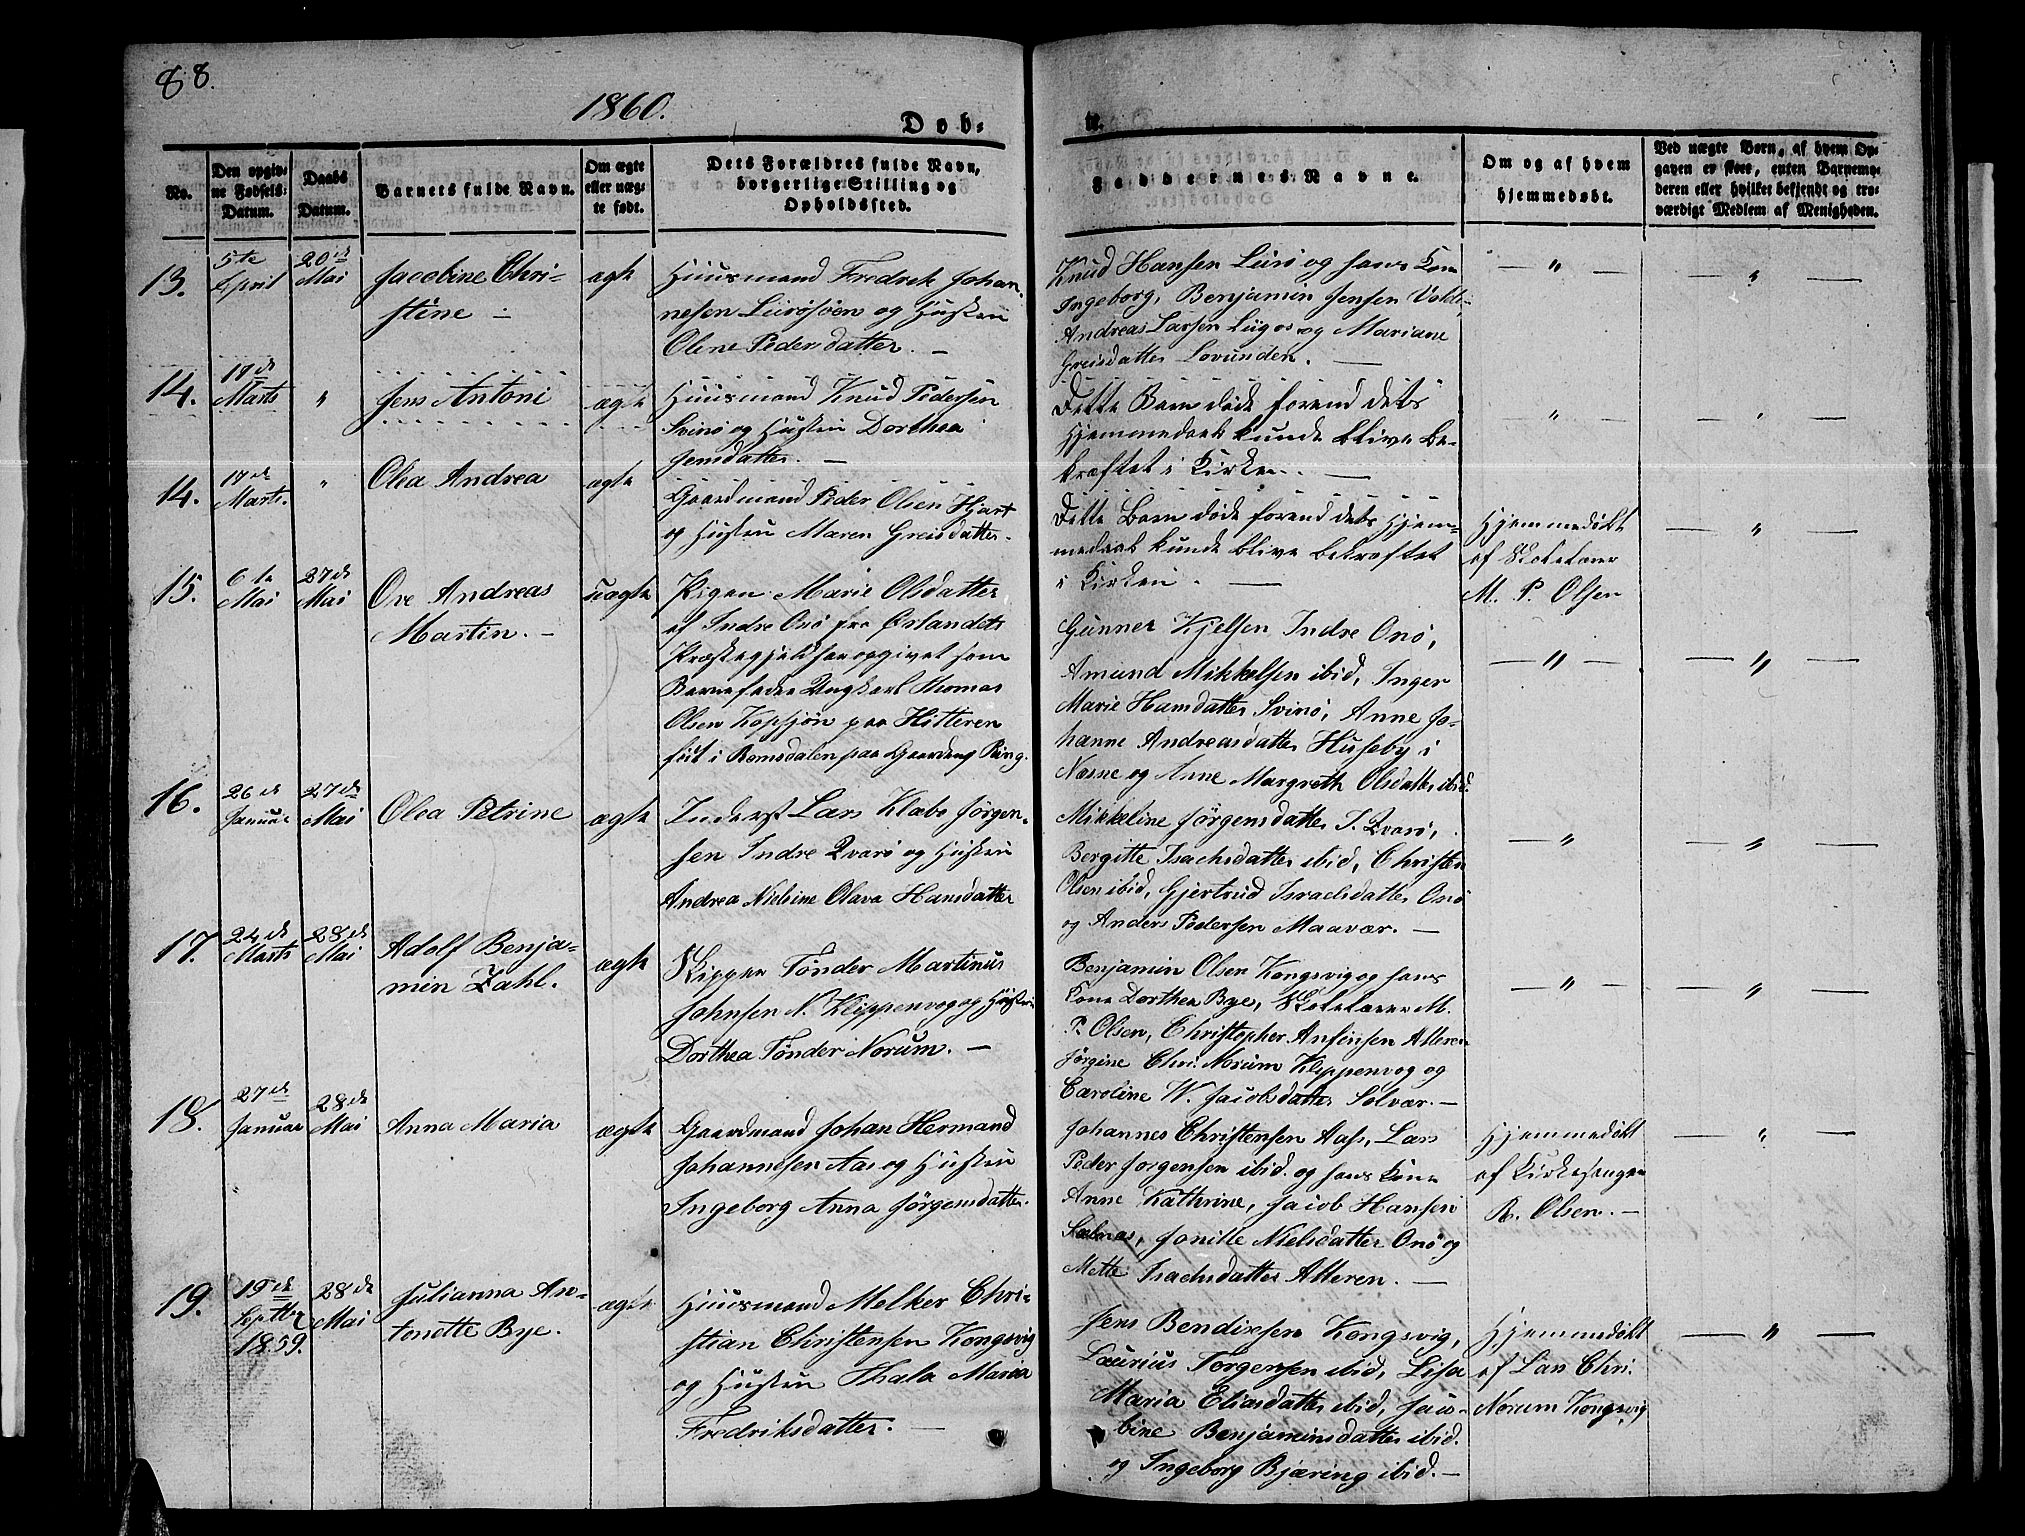 88.
1860.
Døb-
te.
No.
Den opgiv-
ne Fødsels-
Datum.
Daabs
Datum.
Barnets fulde Navn.
Om ægte
eller uæg-
te født.
Dets Forældres fulde Navn,
borgerlige Stilling og
Opholdssted.
Faddernes Navne.
Om og af hvem
hjemmedøbt.
Ved uægte Børn, af hvem Op-
gaven er skeet, enten Barnemo-
deren eller hvilket bekjendt og tro-
værdigt Medlem af Menigheden.
13.
5te
April
20de
Mai
Jacobine Chri-
stine -
ægte
Huusmand Fredrik Johan-
nesen Lurøsøen og Hustru
Oline Pedersdatter. -
Knud Hansen Lurø og hans Kone
Ingeborg, Benjamin Jensen
Andreas Larsen og Mariane
Greisdatter Lovunden. -
- " -
- " -
14.
Marts
"
Jens Antoni
ægte
Huusmand Knud Pedersen
Svinø og Hustru Dorthea
Jensdatter. -
Dette Barn døde forend dets
Hjemmedaab kunde blive be-
kræftet i Kirken. -
- " -
- " -
14.
17de
Marts.
"
Olea Andrea
ægte
Gaardmand Peder Olsen Hjart
og Hustru Maren Greisdatter.
Dette Barn døde forend dets Hjem-
medaab kunde blive bekræftet
i Kirken. -
Hjemmedøbt
af Skolelærer
M. P. Olsen
- " -
15.
6te
Mai
27de
Mai
Ove Andreas
Martin. -
uægte
Pigen Marie Olsdatter
af Indre Onø fra Ørlandets
Præstegjeld har opgivet som
Barnefader Ungkarl Thomas
Olsen Kopsjøn paa Hitteren
født i Romsdalen paa Gaarden Ring.
Gunner Kjelsen Indre Onø,
Amund Mikkelsen ibid, Inger
Marie Hansdatter Svinø, Anne Jo-
hanne Andreasdatter Huseby i
Næsne og Anne Margreth Olsdatter ibid.
- " -
- " -
16.
26de
Januar
27de
Mai
Olea Petrine
ægte
Inderst Lars Klæbo Jørgen-
sen Indre Qvarø og Hustru
Andrea Nielsine Olava Hansdatter
Mikkeline Jørgensdatter I. Qvarø,
Bergitte Isachsdatter ibid, Christen
Olsen ibid, Gjertrud Israelsdatter Onø
og Anders Pedersen Maavær. -
- " -
- " -
17.
24de
Marts
28de
Mai
Adolf Benja-
min Zahl.
ægte
Skipper Tønder Martinus
Johnsen N. Klippenvog og Hustru
Dorthea Tønder Norum. -
Benjamin Olsen Kongsvig og hans
Kone Dorthea Bye, Skolelærer M.
P. Olsen, Christopher Anfinsen Alteren
Jørgine Chr. Norum Klippenvog og
Caroline W. Jacobsdatter Solvær. -
- " -
- " -
18.
27de
Januar
28de
Mai
Anna Maria
ægte
Gaardmand Johan Hermand
Johannesen Aas og Hustru
Ingeborg Anna Jørgensdatter.
Johannes Christensen Aas, Lars
Peder Jørgensen ibid. og hans Kone
Anne Kathrine, Jacob Hansen
Selnæs, Jonille Nielsdatter Onø og
Mette Isachsdatter Alteren. -
Hjemmedøbt
af Kirkesanger
R. Olsen. -
- " -
19.
19de
Septbr
1859.
28de
Mai
Julianna An-
tonette Bye.
ægte
Huusmand Melker Chri-
stian Christensen Kongsvig
og Hustru Thala Maria
Fredriksdatter. -
Jens Bendixsen Kongsvig,
Laurius Torgersen ibid, Lisa
Maria Eliasdatter ibid, Jaco-
bine Benjaminsdatter ibid.
og Ingeborg Bjæring ibid. -
Hjemmedøbt
af Lars Chr.
Norum Kongsvig
- " -